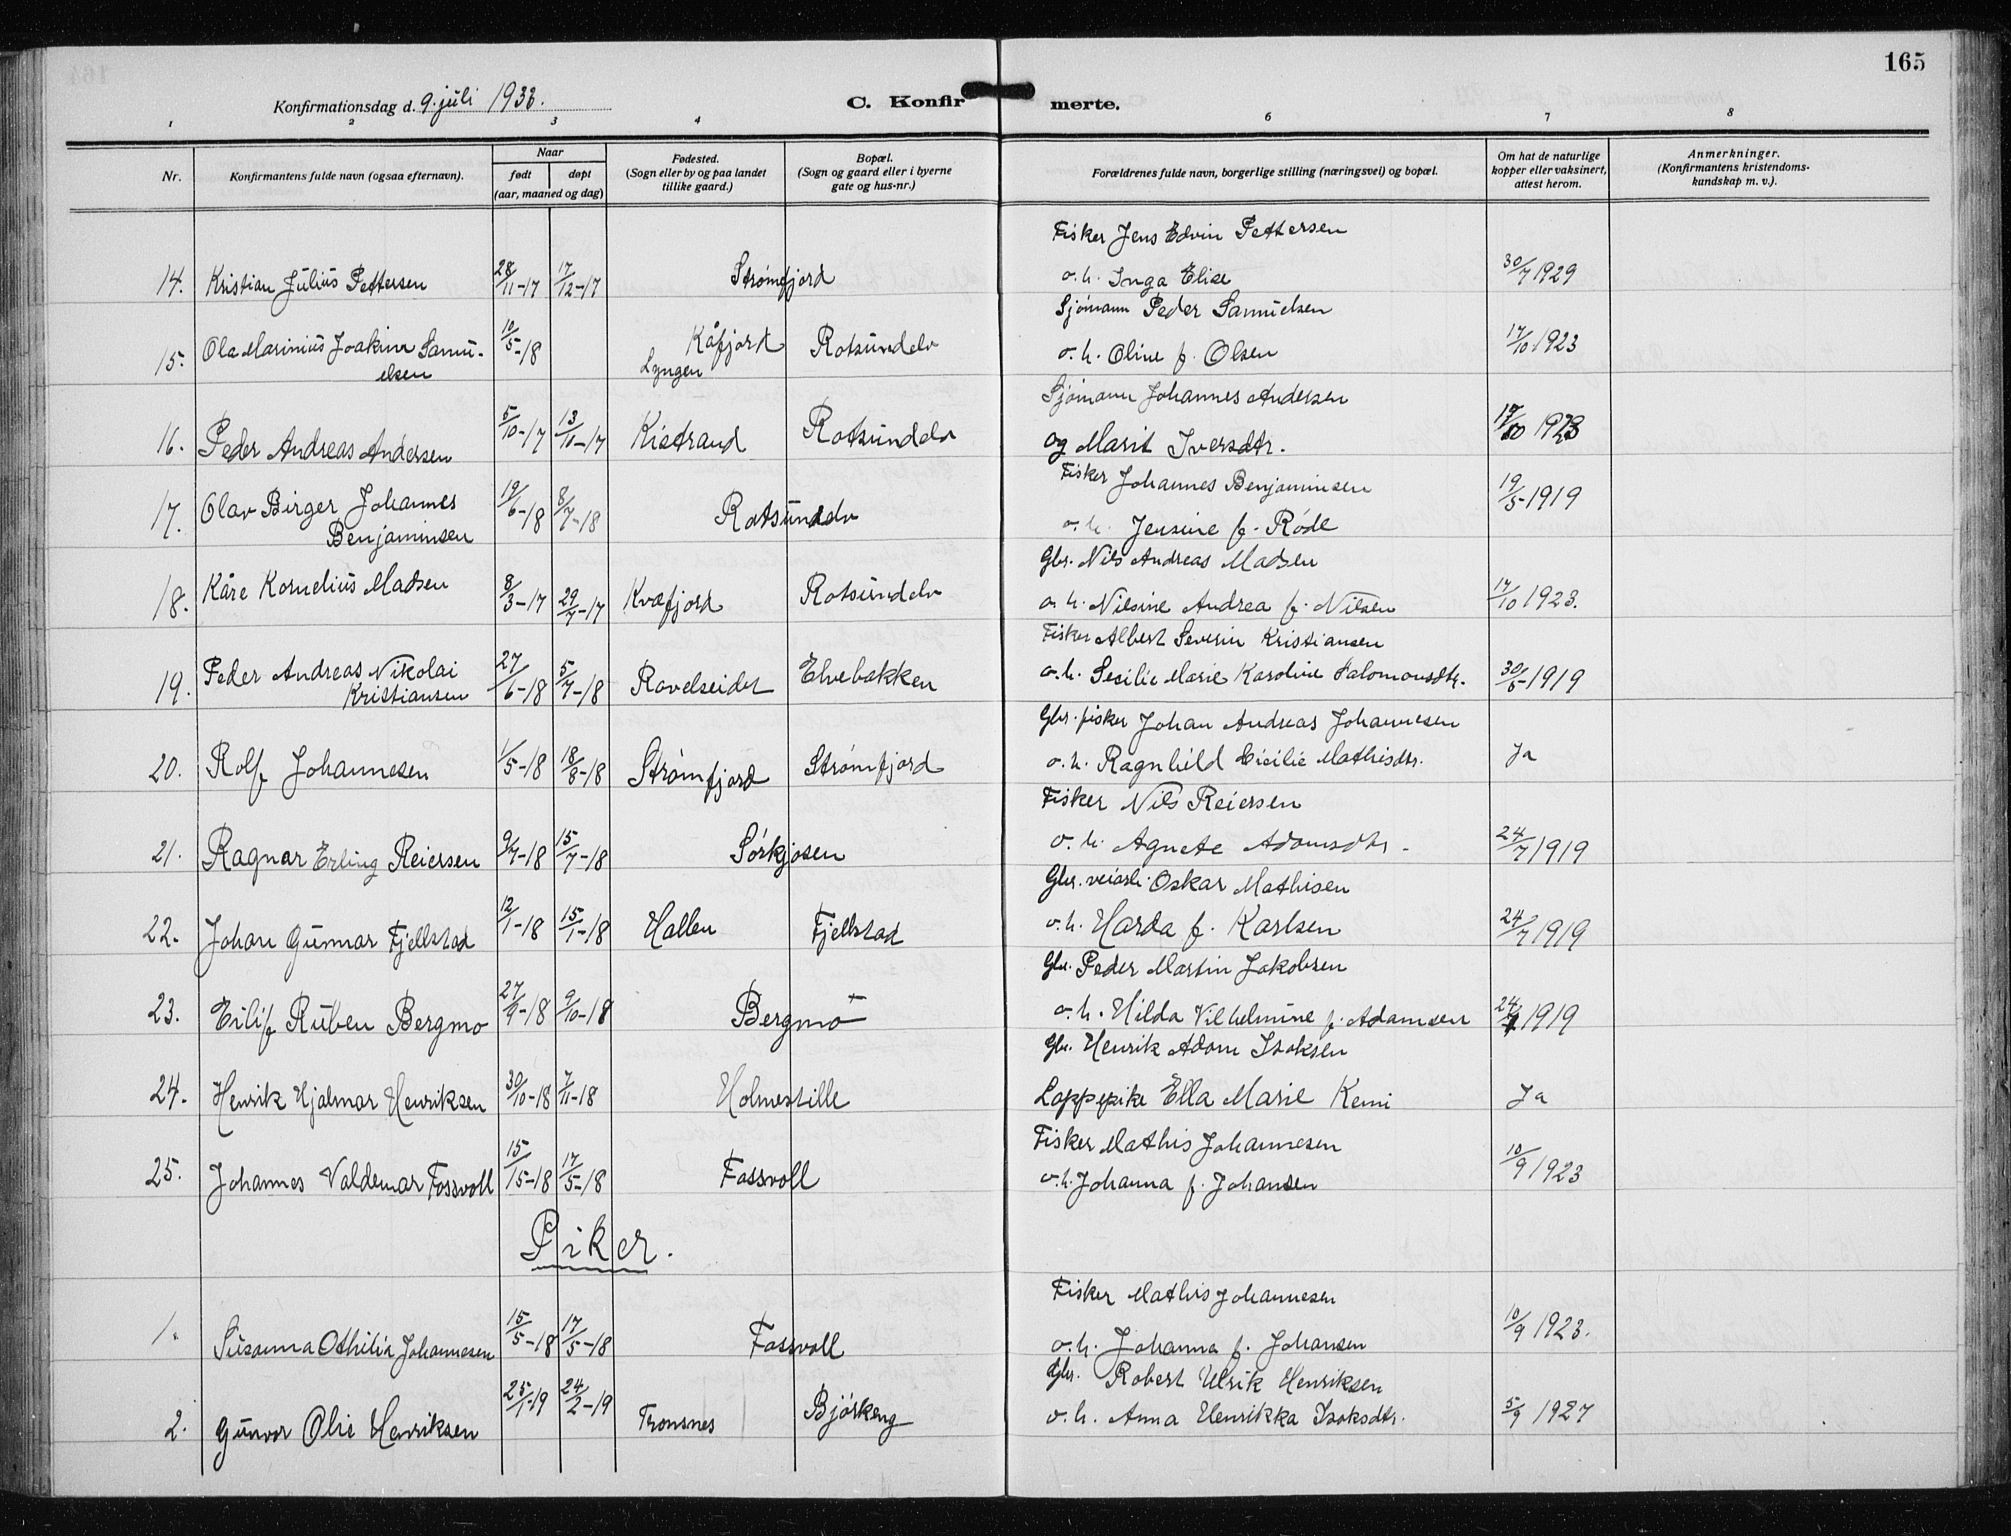 165
Konfirmationsdag d. 9. juli 1933.
C. Konfirmerte.
1 2 3 4 6 7 8
Nr.
Konfirmantens fulde navn (ogsaa efternavn).
Naar
født
døpt
(aar, maaned og dag)
Fødested.
(Sogn eller by og paa landet
tillike gaard.)
Bopæl.
(Sogn og gaard eller i byerne
gate og hus-nr.)
Forældrenes fulde navn, borgerlige stilling (næringsvei) og bopæl.
Om hat de naturlige
kopper eller vaksinert,
attest herom.
Anmerkninger.
(Konfirmantens kristendoms-
kundskap m. v.).
Fisker Jens Edvin Pettersen
14. Kristian Julius Pettersen 28/11-17 17/12-17 Strømfjord o. h. Inga Elise 30/7 1929
Sjømann Peder Samuelsen
15. Ola Marinius Joakim Samu- 10/5-18 Kåfjord Rotsundelv o. h. Oline f. Olsen 17/10 1923
elsen Lyngen
Sjømann Johannes Andersen
16. Peder Andreas Andersen 5/10-17 13/10-17 Kistrand Rotsundelv og Marit Iversdtr. 17/10 1923
Fisker Johannes Benjaminsen
17. Olav Birger Johannes 19/6-18 8/7-18 Rotsundelv 19/5-1919
Benjaminsen o. h. Jensine f. Røde
Gbr. Nils Andreas Madsen
18. Kåre Kornelius Madsen 8/3-17 29/7-17 Kvæfjord Rotsundelv o. h. Nilsine Andrea f. Nilsen 17/10 1923.
Fisker Albert Severin Kristiansen
19. Peder Andreas Nikolai 27/6-18 5/7-18 Ravelseidet Elvebakken o. h. Secilie Marie Karoline Salomonsdtr. 30/5-1919
Kristiansen
Gbr. fisker Johan Andreas Johannesen
20. Rolf Johannesen 1/5-18 18/8-18 Strømfjord Strømfjord o. h. Ragnhild Cicilie Mathisdtr. Ja
Fisker Nils Reiersen
21. Ragnar Erling Reiersen 9/7-18 15/7-18 Sørkjosen o. h. Agnete Adamsdtr. 24/7 1919
Gbr. veiarb. Oskar Mathisen
22. Johan Gunnar Fjellstad 12/1-18 15/1-18 Hallen Fjellstad o. h. Harda f. Karlsen 24/7 1919
Gbr. Peder Martin Jakobsen
23. Eilif Ruben Bergmo 27/9-18 9/10-18 Bergmo o. h. Hilda Vilhelmine f. Adamsen 24/7 1919
Gbr. Henrik Adam Isaksen
24. Henrik Hjalmar Henriksen 30/10-18 7/11-18 Holmestille Lappepike Ella Marie Kemi Ja
Fisker Mathis Johannesen
25. Johannes Valdemar Fossvoll 15/15-18 17/5-18 Fossvoll o. h. Johanna f. Johansen 10/9 1923
Piker.
Fisker Mathis Johannesen
1. Susanna Othilia Johannesen 15/5-18 17/5-18 Fossvoll o. h. Johanna f. Johansen 10/9 1923.
Gbr. Robert Ulrik Henriksen
2. Gunvor Olie Henriksen 25/1-19 24/2-19 Tromsnes Bjørkeng o. h. Anna Henrikka Isaksdtr. 5/9 1927